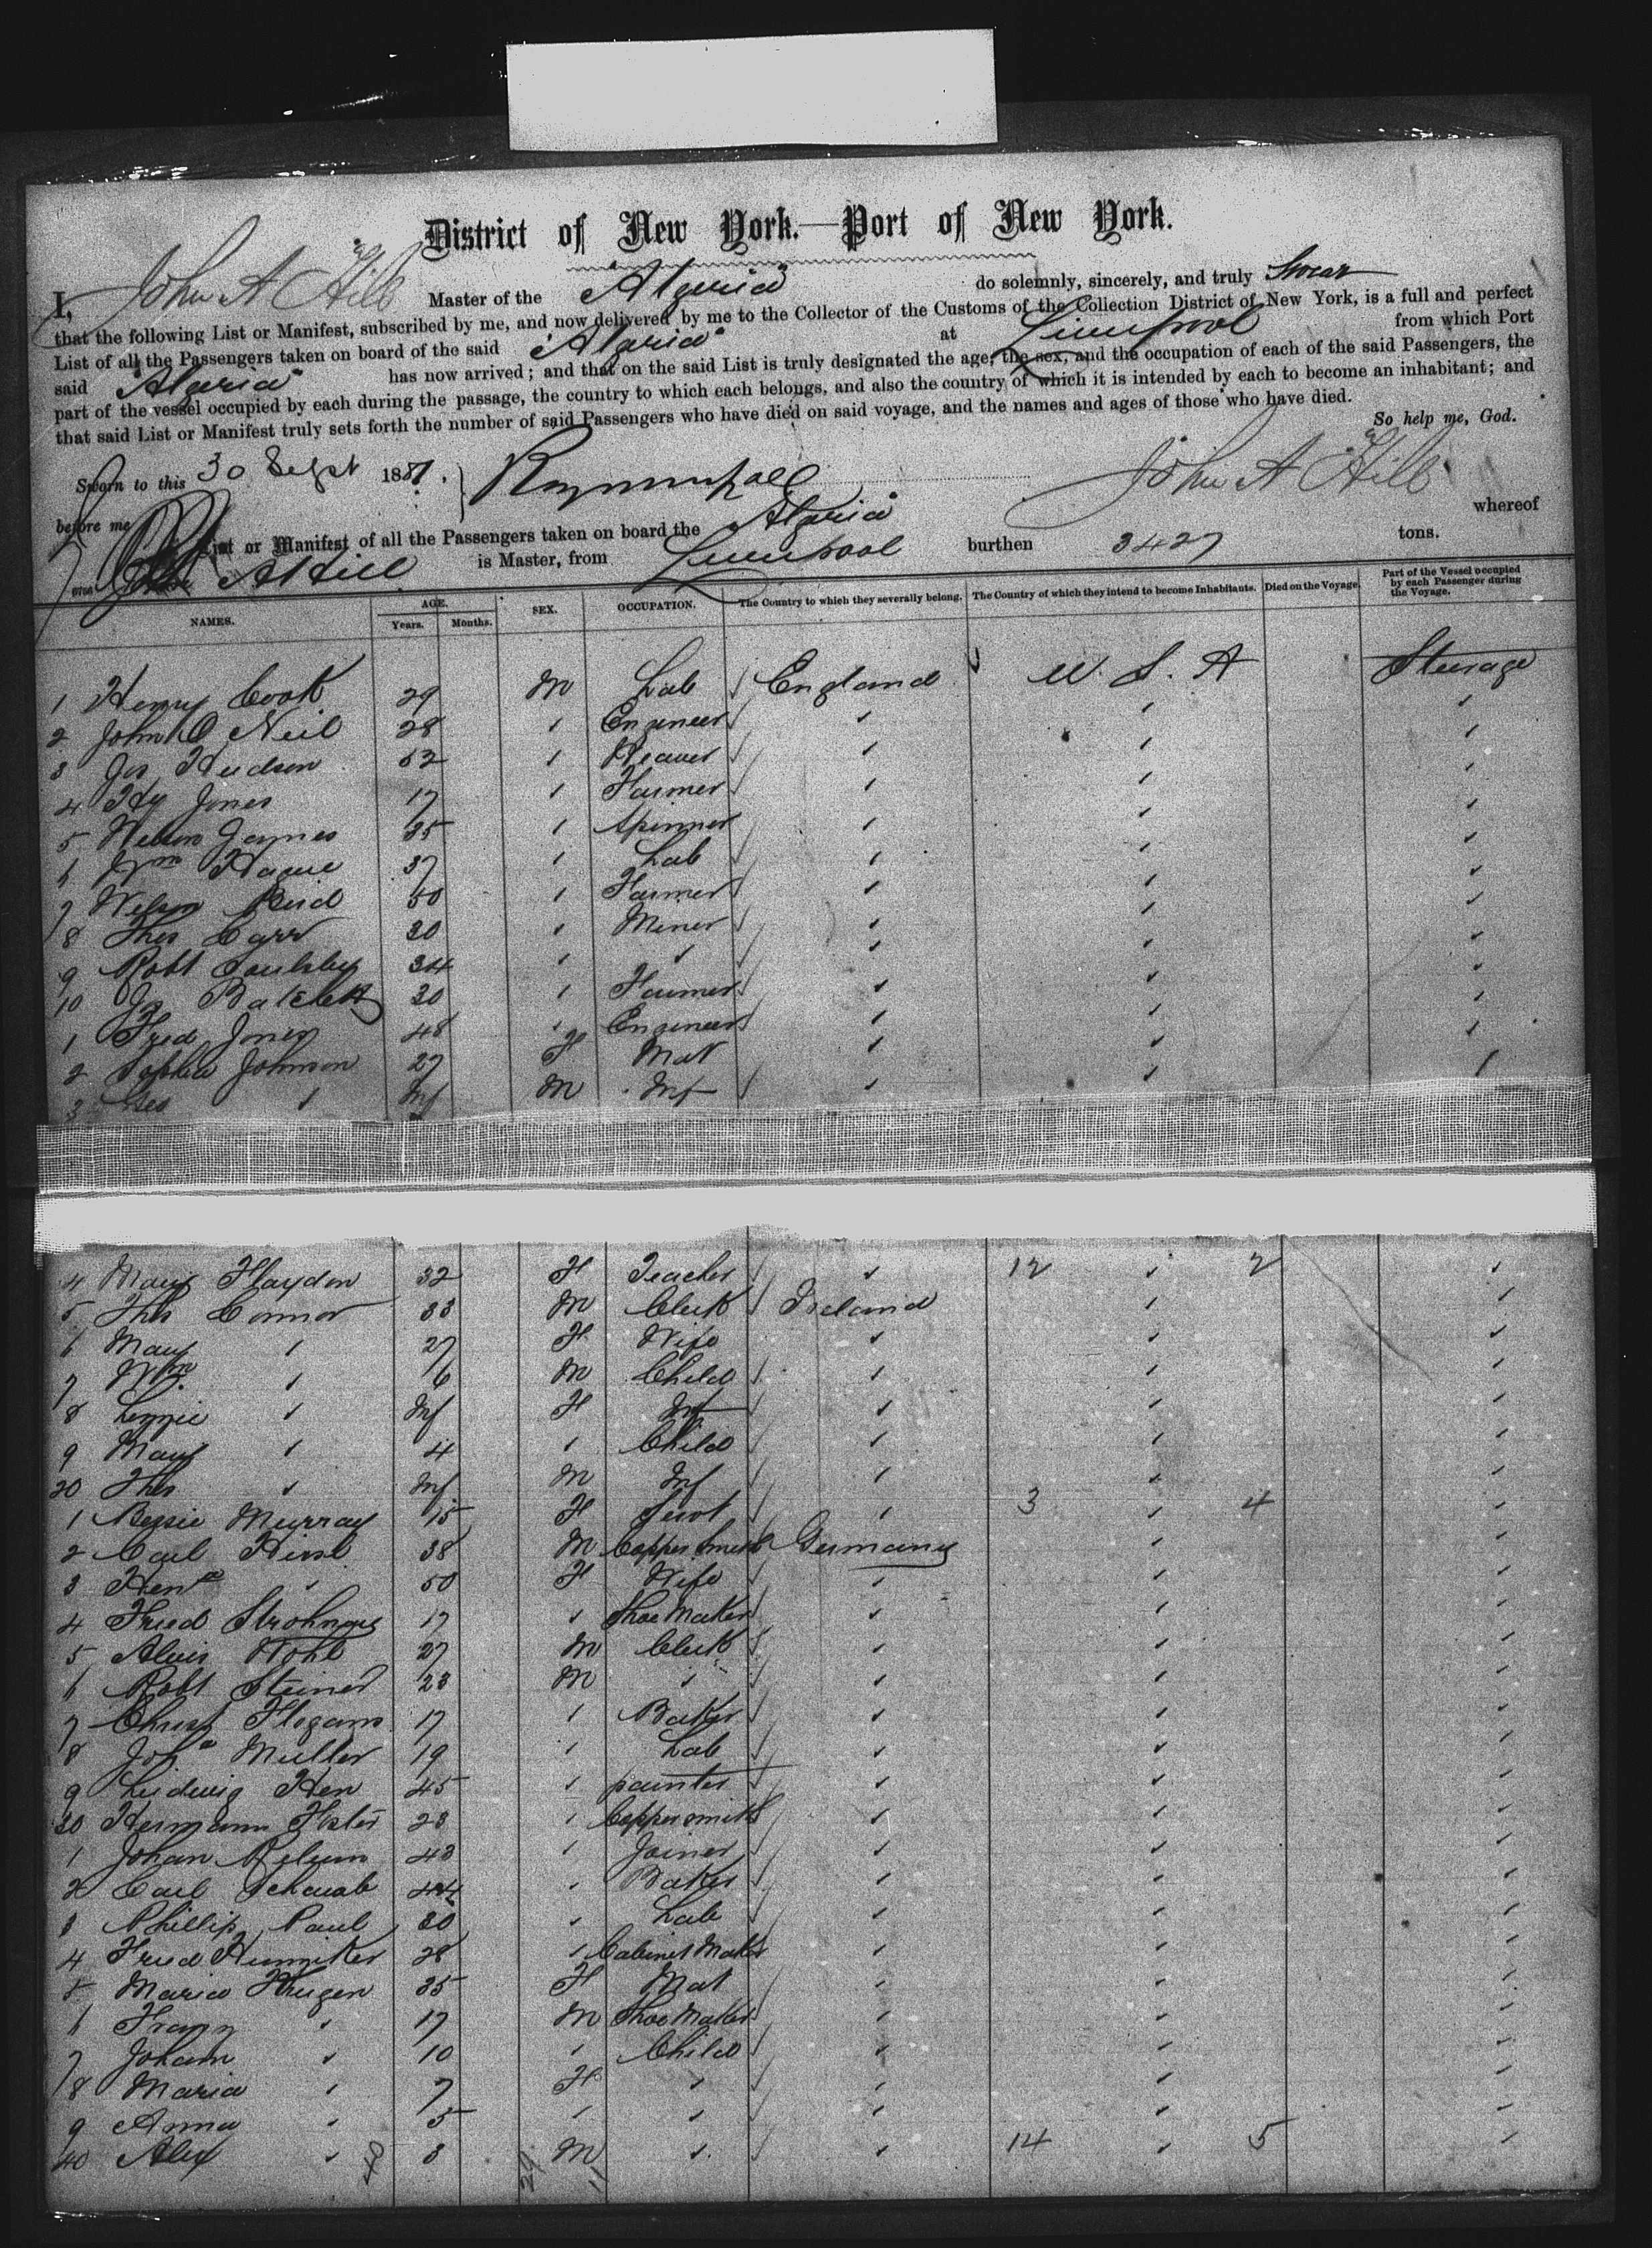 District of New York.—Port of New York.
I, John A Hill Master of the "Algeria" do solemnly, sincerely, and truly Swear
that the following List or Manifest, subscribed by me, and now delivered by me to the Collector of the Customs of the Collection District of New York, is a full and perfect
List of all the Passengers taken on board of the said "Algeria" at Liverpool from which Port
said "Algeria" has now arrived; and that on the said List is truly designated the age, the sex, and the occupation of each of the said Passengers, the
part of the vessel occupied by each during the passage, the country to which each belongs, and also the country of which it is intended by each to become an inhabitant; and
that said List or Manifest truly sets forth the number of said Passengers who have died on said voyage, and the names and ages of those who have died.
So help me, God.
Sworn to this 30 Sept 1881. John A Hill
before me
List or Manifest of all the Passengers taken on board the "Algeria" whereof
John A Hill is Master, from Liverpool burthen 3427 tons.
NAMES. AGE. Years. Months. SEX. OCCUPATION. The Country to which they severally belong. The Country of which they intend to become Inhabitants. Died on the Voyage. Part of the Vessel occupied by each Passenger during the Voyage.
1 Henry Cook 29 M Lab England U. S. A Steerage
2 John O Neil 28 Engineer
3 Jos Hudson 52 Weaver
4 Hy Jones 17 Farmer
5 35 Spinner
6 Wm Hague 37 Lab
7 50 Farmer
8 Thos Carr 30 Miner
9 Robt Soulsby 34
10 30 Farmer
1 Fred Jones 48 Engineer
2 Sophia Johnson 27 F Mat
3 Geo Inf M Inf
4 Mary Haydon 32 F Teacher 12 2
5 Thos Connor 33 M Clerk Ireland
6 Mary 27 F Wife
7 Wm 6 M Child
8 Lizzie Inf F Inf
9 Mary 4 Child
20 Thos Inf M Inf
1 Bessie Murray 15 F Servt 3 4
2 Carl 38 M Copper Smith Germany
3 50 F Wife
4 Fried 17 Shoe Maker
5 Alois Kohl 27 M Clerk
6 Robt Steiner 23 M
7 17 Baker
8 Joha Muller 19 Lab
9 Ludwig 45 painter
30 Hermann 23 Coppersmith
1 Johan 43 Joiner
2 Carl Schwab 44 Baker
3 Phillip Paul 30 Lab
4 Fried 28 Cabinet Maker
5 Maria Krugen 35 F Mat
6 Franz 17 M Shoe Maker
7 Johann 10 Child
8 Maria 7 F
9 Anna 5
40 Alex 3 M 14 5
29 11